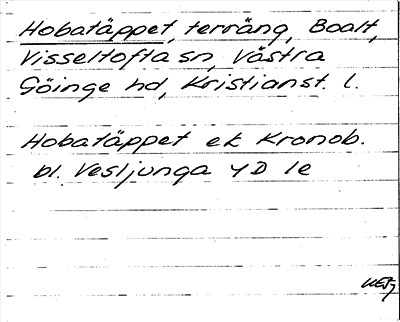 Hobatäppet, terräng, Boalt,
Visseltofta sn, Västra
Göinge hd, Kristianst. l.
Hobatäppet ek Kronob.
bl. Vesljunga 4D 1e